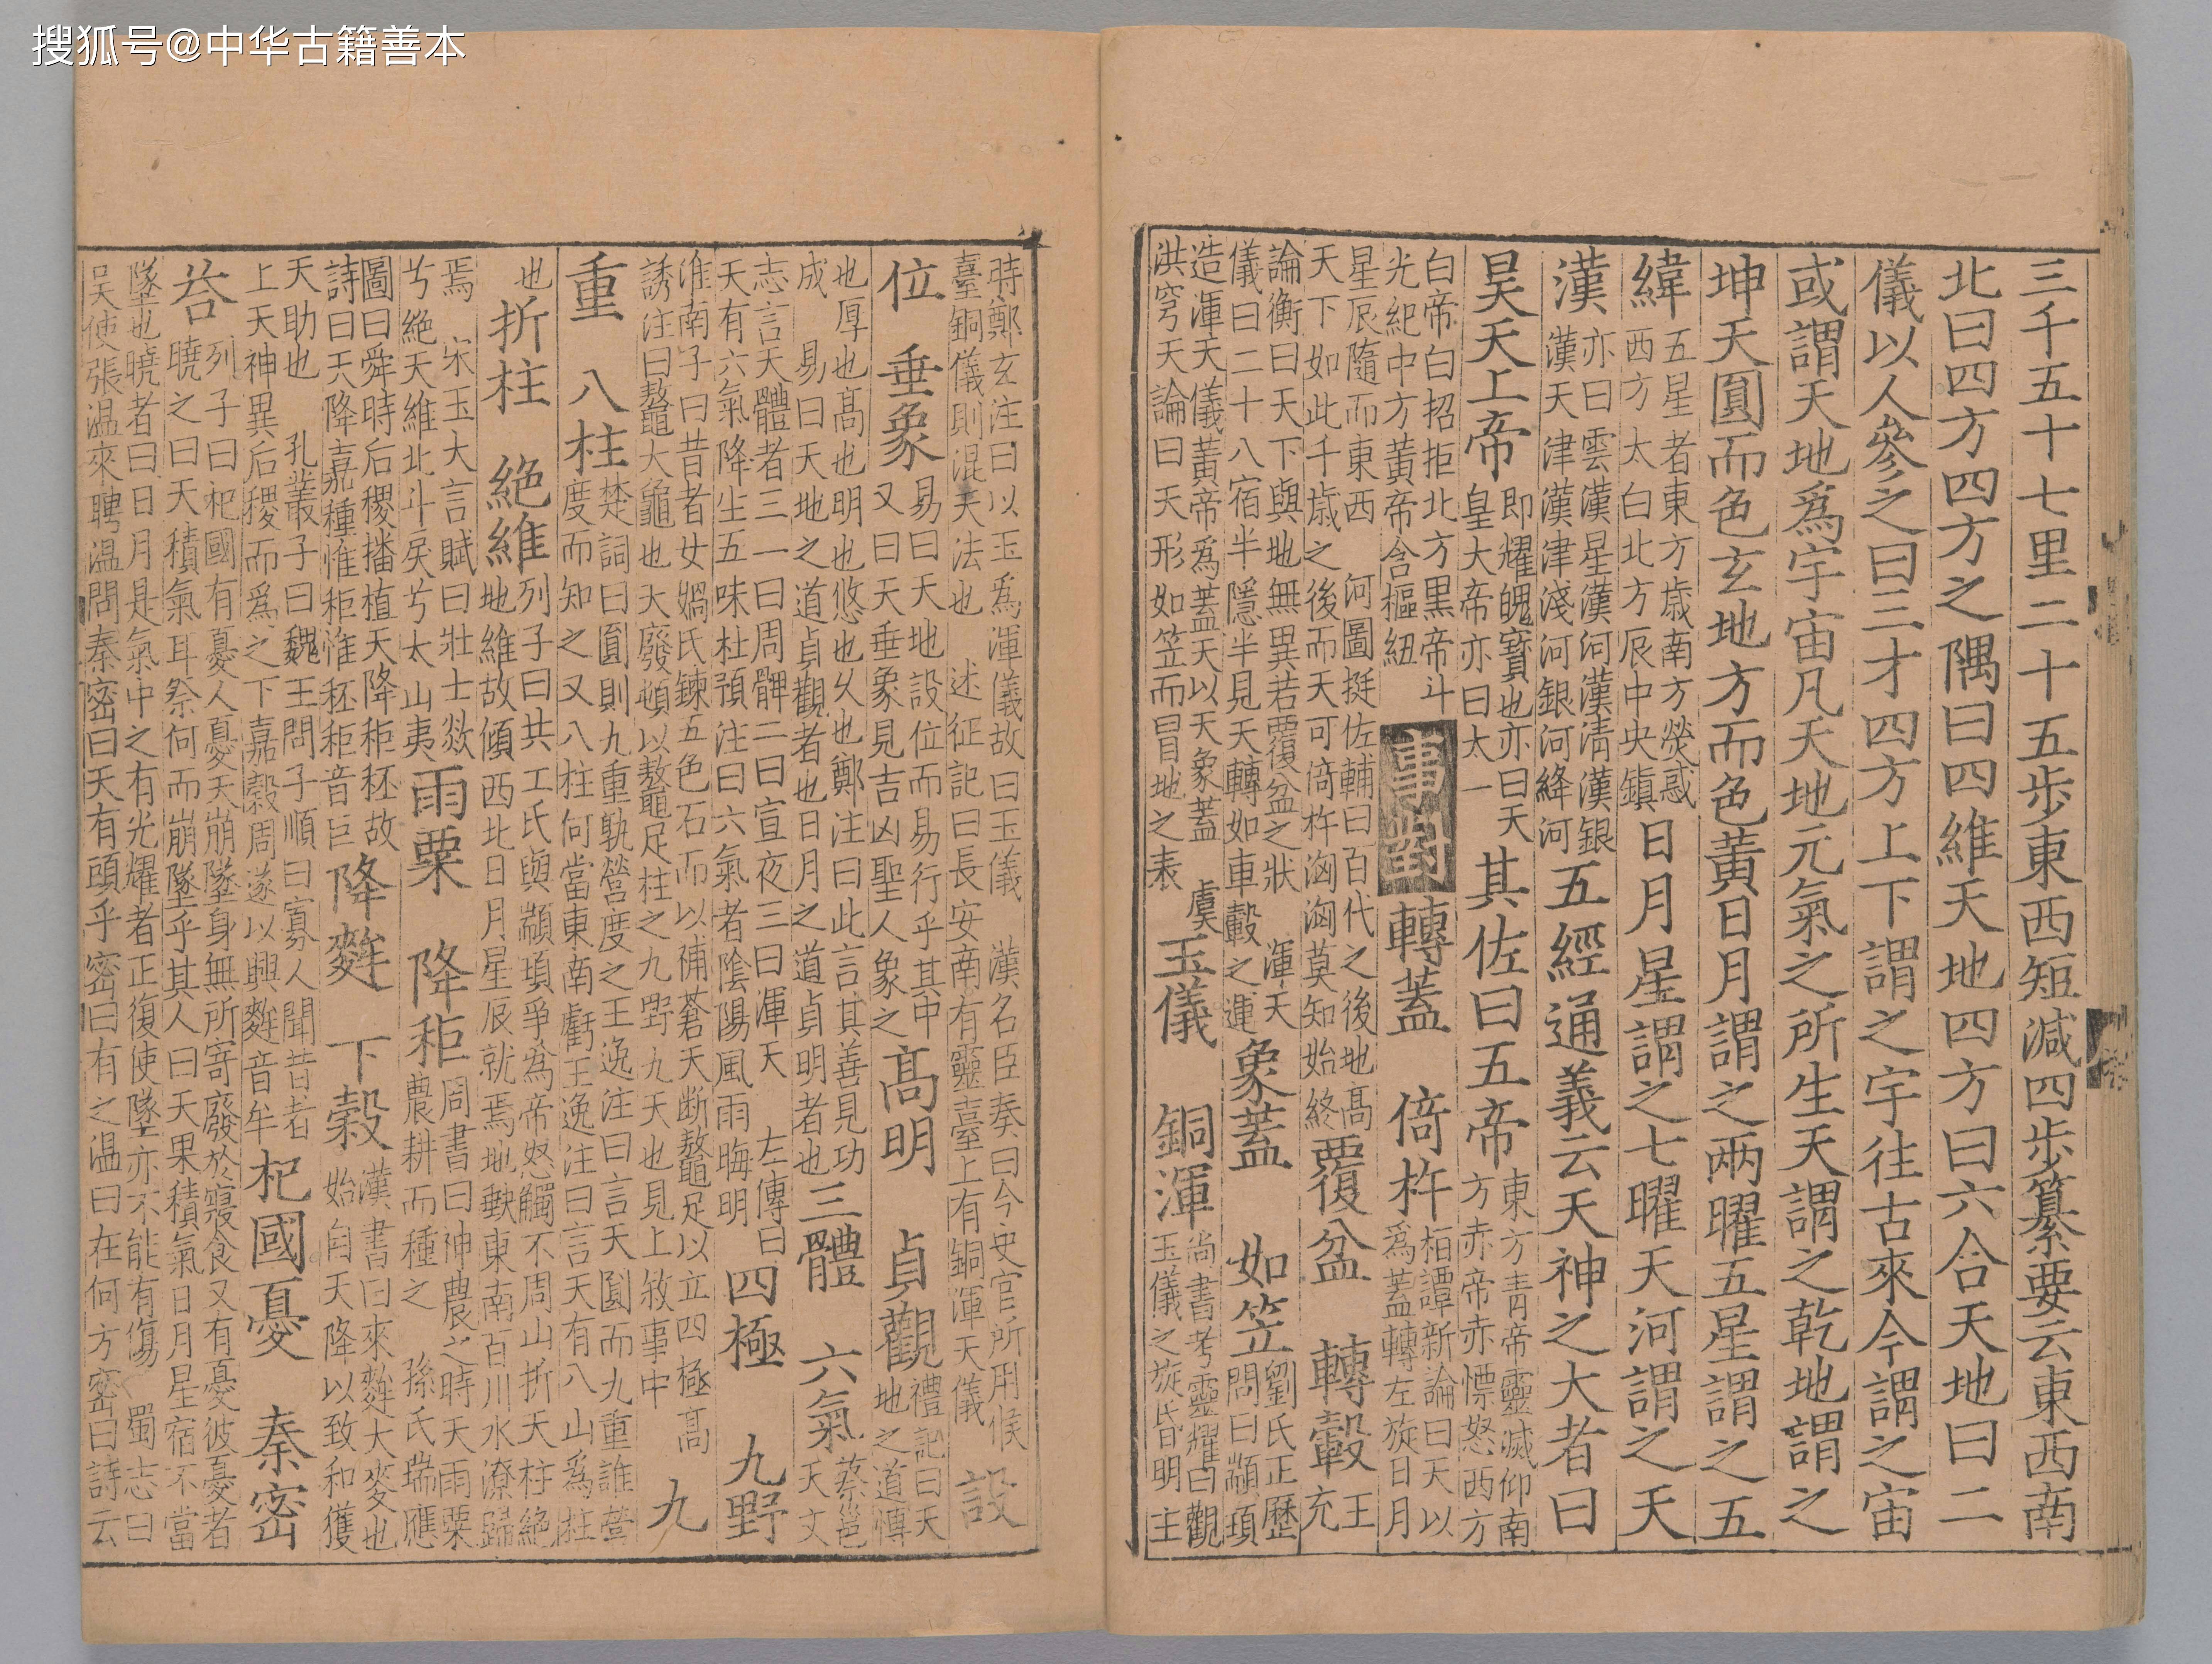 搜狐号@中华古籍善本
三千五十七里二十五步東西短減四步纂要云東西南
北曰四方四方之隅曰四維天地四方曰六合天地曰二
儀以人參之曰三才四方上下謂之宇往古來今謂之宙
或謂天地爲宇宙凡天地元氣之所生天謂之乾地謂之
坤天圓而色玄地方而色黃日月謂之兩曜五星謂之五
緯五星者東方歲南方熒惑西方太白北方辰中央鎮日月星謂之七曜天河謂之天
漢亦曰雲漢星漢河漢清漢銀漢天津漢津淺河銀河絳河五經通義云天神之大者曰
昊天上帝即耀魄寶也亦曰天皇大帝亦曰太一其佐曰五帝東方青帝靈滅仰南方赤帝赤熛怒西方
白帝白招拒北方黑帝斗光紀中方黃帝含樞紐 事對 轉蓋 倚杵桓譚新論曰天以爲蓋轉左旋日月
星辰隨而東西 河圖挺佐輔曰百代之後地髙天下如此千歲之後而天可倚杵洶洶莫知始終覆盆 轉轂王充
論衡曰天下與地無異若覆盆之狀 渾天儀曰二十八宿半隱半見天轉如車轂之運象蓋 如笠劉氏正歷問曰顓頊
造渾天儀黃帝爲蓋天以天象蓋 虞洪穹天論曰天形如笠而冒地之表玉儀 銅渾尚書考靈耀曰觀玉儀之旋昏明主
時鄭玄注曰以玉爲渾儀故曰玉儀 漢名臣奏曰今史官所用候臺銅儀則混天法也 述征記曰長安南有靈臺上有銅渾天儀 設
位 垂象易曰天地設位而易行乎其中又曰天垂象見吉凶聖人象之髙明 貞觀禮記曰天地之道博
也厚也髙也明也悠也久也鄭注曰此言其善見功成 易曰天地之道貞觀者也日月之道貞明者也三體 六氣蔡邕天文
志言天體者三一曰周髀二曰宣夜三曰渾天 左傳曰天有六氣降生五味杜預注曰六氣者陰陽風雨晦明四極 九野
淮南子曰昔者女媧氏鍊五色石而以補蒼天断鼇足以立四極髙誘注曰鼇大龜也天廢頓以鼇足柱之九野九天也見上敘事中 九
重 八柱楚詞曰圓則九重孰營度之王逸注曰言天圓而九重誰營度而知之又八柱何當東南虧王逸注曰言天有八山爲柱
也折柱 絕維列子曰共工氏與顓頊爭爲帝怒觸不周山折天柱絕地維故傾西北日月星辰就焉地缺東南百川水潦歸
焉 宋玉大言賦曰壯士欻兮絕天維北斗戾兮太山夷雨粟 降秬周書曰神農之時天雨粟農耕而種之 孫氏瑞應
圖曰舜時后稷播植天降秬秠故詩曰天降嘉種惟秬惟秠秬音巨降麰 下穀漢書曰來麰大麥也始自天降以致和獲
天助也 孔叢子曰魏王問子順曰寡人聞昔者上天神異后稷而爲之下嘉穀周遂以興麰音牟杞國憂 秦宓
荅 列子曰杞國有憂人憂天崩墜身無所寄廢於寢食又有憂彼憂者曉之曰天積氣耳奈何而崩墜乎其人曰天果積氣日月星宿不當
墜也曉者曰日月是氣中之有光耀者正復使墜亦不能有傷 蜀志曰吳使張温來聘温問秦宓曰天有頭乎宓曰有之温曰在何方宓曰詩云